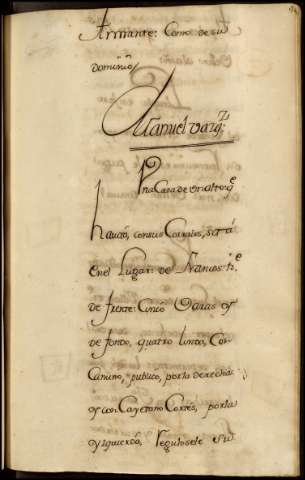 firmante: Como de su
dominio,,
Manuel Vazqz.
Vna Casa de vn alto, qe
hauita, con sus Corrales, sita
en el Lugar: de Francos: tie
de frente: Cinco Varas, y
de fondo, quatro linda, Con
Camino, publico, por la derecha:
y con Cayetano Cortés, por la
Yzquierda, Regulosele su